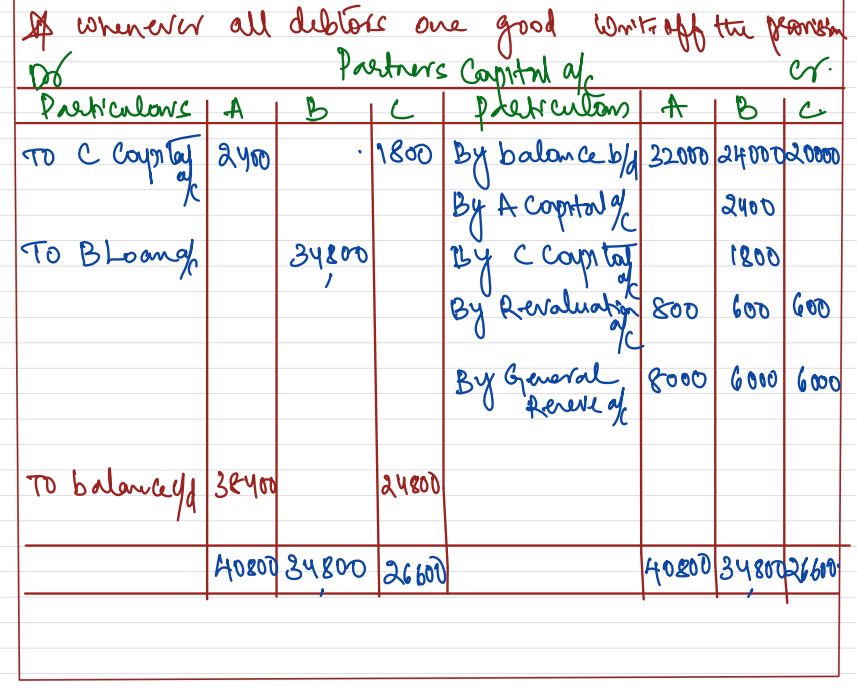 whenever all debtors are good write off the provision
Dr Partners Capital a/c Cr.
Particulars A B C Particulars A B C
To C Capital a/c 2400 1800 By balance b/d 32000 24000 20000
By A Capital a/c 2400
To B Loan a/c 34,800 By C Capital a/c 1800
By Revaluation a/c 800 600 600
By General Reserve a/c 8000 6000 6000
To balance c/d 38400 24800
40800 34,800 26600 40800 34,800 26600